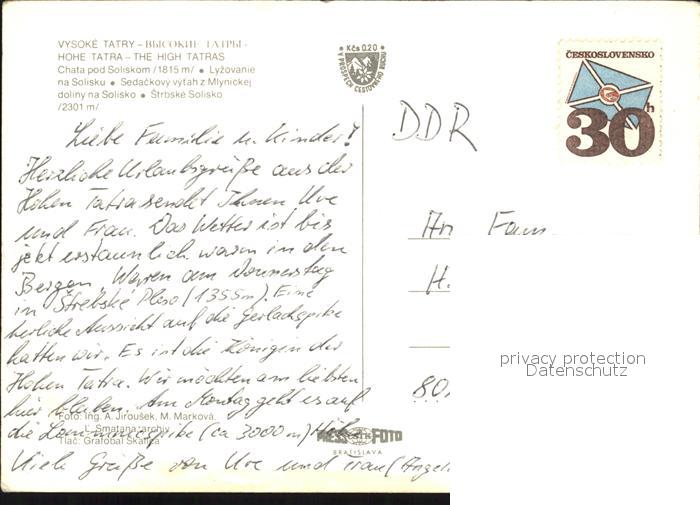 VYSOKÉ TATRY – ВЫСОКИЕ ТАТРЫ –
HOHE TATRA – THE HIGH TATRAS
Chata pod Soliskom /1815 m/ • Lyžovanie
na Solisku • Sedačkový vyťah z Mlynickej
doliny na Solisko • Štrbské Solisko
/2301 m/
Kčs 0.20
V PROSPECH CESTOVNÉHO RUCHU
ČESKOSLOVENSKO
30h
DDR
Liebe Familie u. Kinder!
Herzliche Urlaubsgrüße aus der
Hohen Tatra sendet Ihnen Uwe
und Frau. Das Wetter ist bis
jetzt erstaunlich warm in den
Bergen. Waren am Donnerstag
in Štrebské Pleso (1355m). Eine
herliche Aussicht auf die Gerlachspitze
hatten wir. Es ist die Königin der
Hohen Tatra. Wir möchten am liebsten
hier bleiben. Am Montag geht es auf
die (ca 3000 m) Höhe
Viele Grüße von Uwe und Frau (Angel
An Fam
H.
80
Foto: Ing. A. Jiroušek, M. Marková.
Ľ. Smatana/archív
Tlač: Grafobal Skalica
PRESSFOTO
BRATISLAVA
privacy protection
Datenschutz